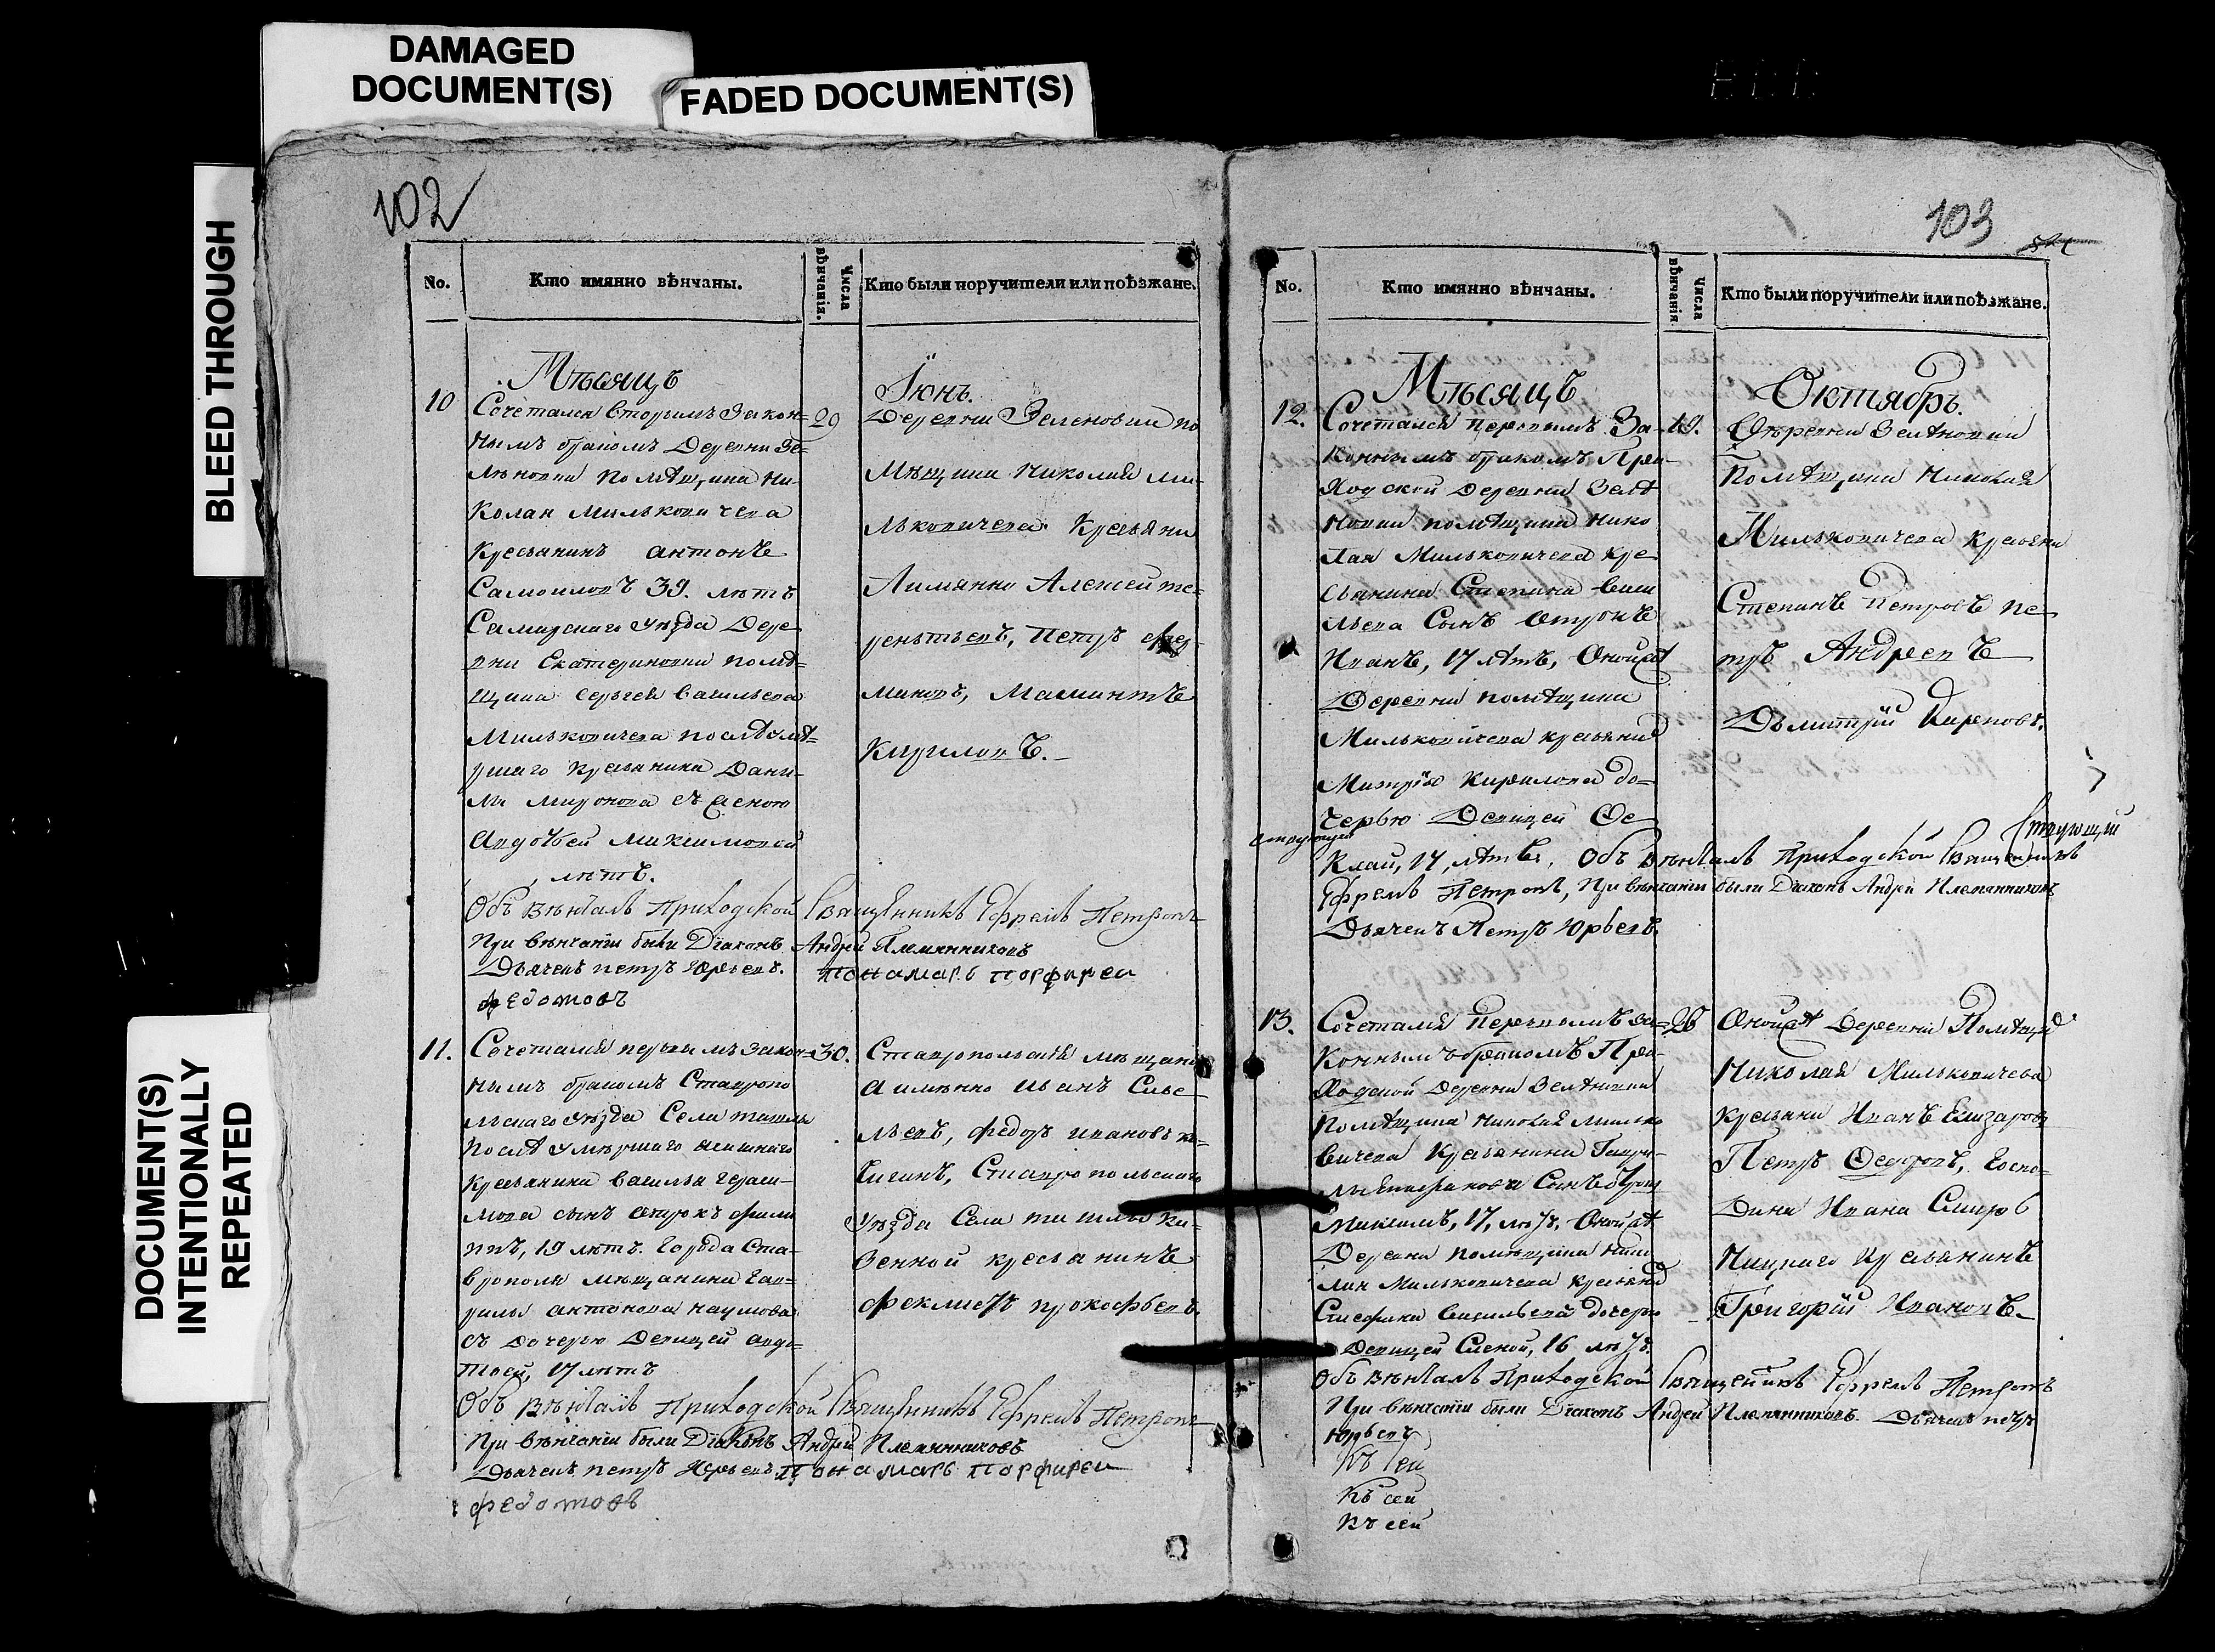 DAMAGED
DOCUMENT(S)
FADED DOCUMENT(S)
BLEED THROUGH
DOCUMENT(S)
INTENTIONALLY
REPEATED
102
No.
Кто имянно вѣнчаны.
Числа
вѣнчанія.
Кто были поручители или поѣзжане.
Мѣсяцъ
Іюнь.
10
Сочетался вторымъ закон=
нымъ бракомъ Деревни Зе=
леновки помѣщика Ни-
колая Мильковичева
Крестьянинъ антонъ
Самоиловъ 39. лѣтъ
Самарскаго уѣзда Дере
вни Екатериновки помѣ=
щика Сергея Васильева
Мильковичева послѣ умѣ=
ршаго крестьянина Дани-
лы Миронова съ женою
Авдотьей Максимовой
лѣтъ.
29
Деревни Зеленовки по
мѣщика Николая ми-
льковичева Крестьяни
Аимянно Алексей те-
рентьевъ, Петръ
Маминтъ
Кириловъ.
Объ вѣнчалъ Приходской Священникъ Ефремъ Петровъ
При вѣнчаніи были Діаконъ Андрей Племянниковъ
Дьячекъ петръ Юрьевъ. понамарь порфиреи
федотовъ
11.
Сочетался первымъ закон=
нымъ бракомъ Ставропо
льскаго уѣзда Села
послѣ умѣршаго
крестьянина Василья гераси-
мова сынъ отрокъ фили
ппъ, 19 лѣтъ. города Ста-
врополя мѣщанина гав=
рилы антонова наумова
съ дочерью девицей авдо=
тьей, 17 лѣтъ
30.
Ставропольскія мѣщани
аимянно Иванъ
федоръ ивановъ
Ставропольскаго
уѣзда Села ка-
зенной крестьянинъ
прокофьевъ.
Объ вѣнчалъ Приходской Священникъ Ефремъ Петровъ
При вѣнчаніи были Діаконъ Андрей Племянниковъ
Дьячекъ петръ Юрьевъ Понамарь Порфиреи
федотовъ
103
No.
Кто имянно вѣнчаны.
Числа
вѣнчанія.
Кто были поручители или поѣзжане.
Мѣсяцъ
Октябрь.
12.
Сочетался первымъ За-
коннымъ бракомъ При-
ходской деревни Зелѣ
новки помѣщика Нико
лая Мильковичева кре
стьянина Степана Васи
льева Сынъ Отрокъ
Иванъ, 17 лѣтъ, Онойже
Деревни помѣщика
Мильковичева крестьянина
Митрія Кирилова до=
черью Девицей Фе
клай, 17, лѣтъ.
19.
Деревни Зелѣновки
Помѣщика Николая
Мильковичева крестьяни
Степанъ Петровъ пе
тръ Андреевъ
Дьмитрій Кириловъ.
Объ вѣнчалъ Приходской Священникъ
Ефремъ Петровъ, При вѣнчаніи были Діаконъ Андрей Племянниковъ
Дьячекъ Петръ Юрьевъ.
13.
Сочетался Первымъ за=
коннымъ бракомъ При-
ходской Деревни Зелѣновки
Помѣщика Николая Милько
вичева Крестьянина Гаври-
лы Сынъ Отрокъ
Максимъ, 17, лѣтъ. Онойже
Деревни помѣщика Нико
лая Мильковичева крестьянина
Василье дочерью
Девицей Еленой, 16 лѣтъ.
26
Онойже Деревни Помѣщика
Николая Мильковичева
крестьяни Иванъ Елизаровъ
Петръ Федоровъ, Госпо-
дина Ивана
крестьянинъ
Григорій Ивановъ
Объ вѣнчалъ Приходской Священникъ Ефремъ Петровъ
При вѣнчаніи были Діаконъ Андрей Племянниковъ. Дьячекъ петръ
Юрьевъ
Къ сеи
Къ сеи
Къ сеи